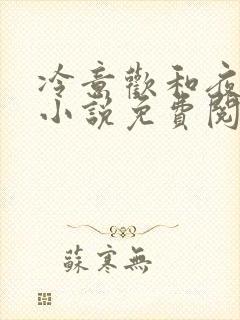 冷意歡和夜
小說免費閱
蘇寒無